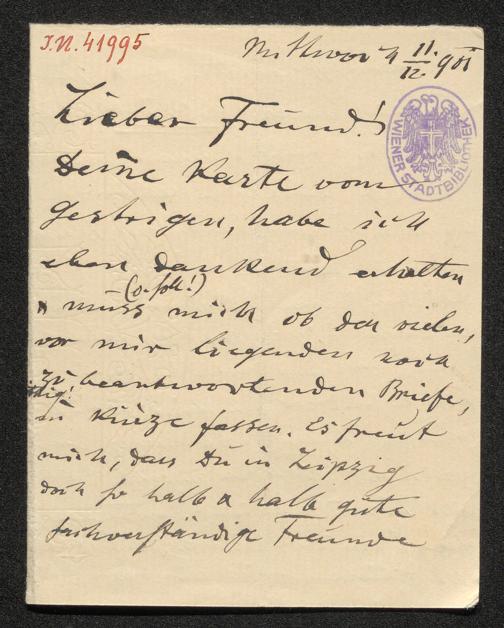 J.N. 41995
Mittwoch 11./12. 901
WIENER STADTBIBLIOTHEK
Lieber Freund!
Deine Karte vom
gestrigen, habe ich
eben dankend erhalten
muss mich ob der vielen,
vor mir liegenden noch
zu beantwortenden Briefe,
in Kürze fassen. Es freut
mich, dass Du in Leipzig
doch so halb & halb gute
sachverständige Freunde